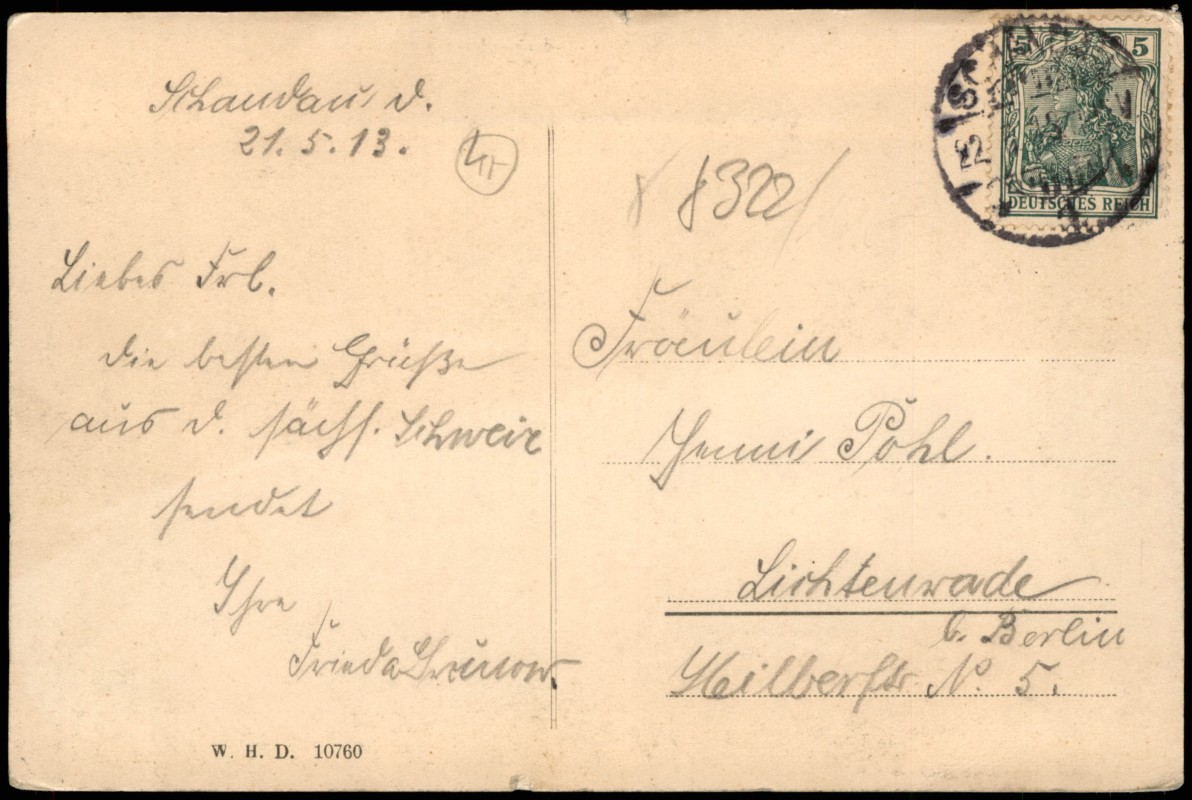 Schandau, d.
21.5.13.
Liebes Frl.
die besten Grüße
aus d. sächs. Schweiz
sendet
Ihre
Frieda Grunow.
W. H. D. 10760
8322
5 5
DEUTSCHES REICH
22
Fräulein
Jenni Pohl.
Lichtenrade
b. Berlin
Hilbertstr. No. 5.